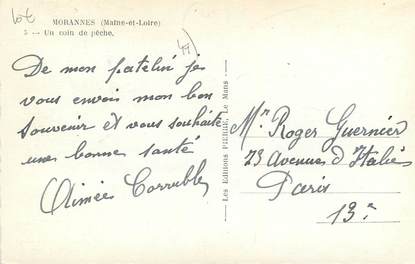 MORANNES (Maine-et-Loire)
5 - Un coin de pêche.
De mon patelin je
vous envois mon bon
souvenir et vous souhaite
une bonne santé
Aimée
Les Editions PIERRE, Le Mans
Mr Roger Guernier
23 Avenue d'Italie
Paris
13e